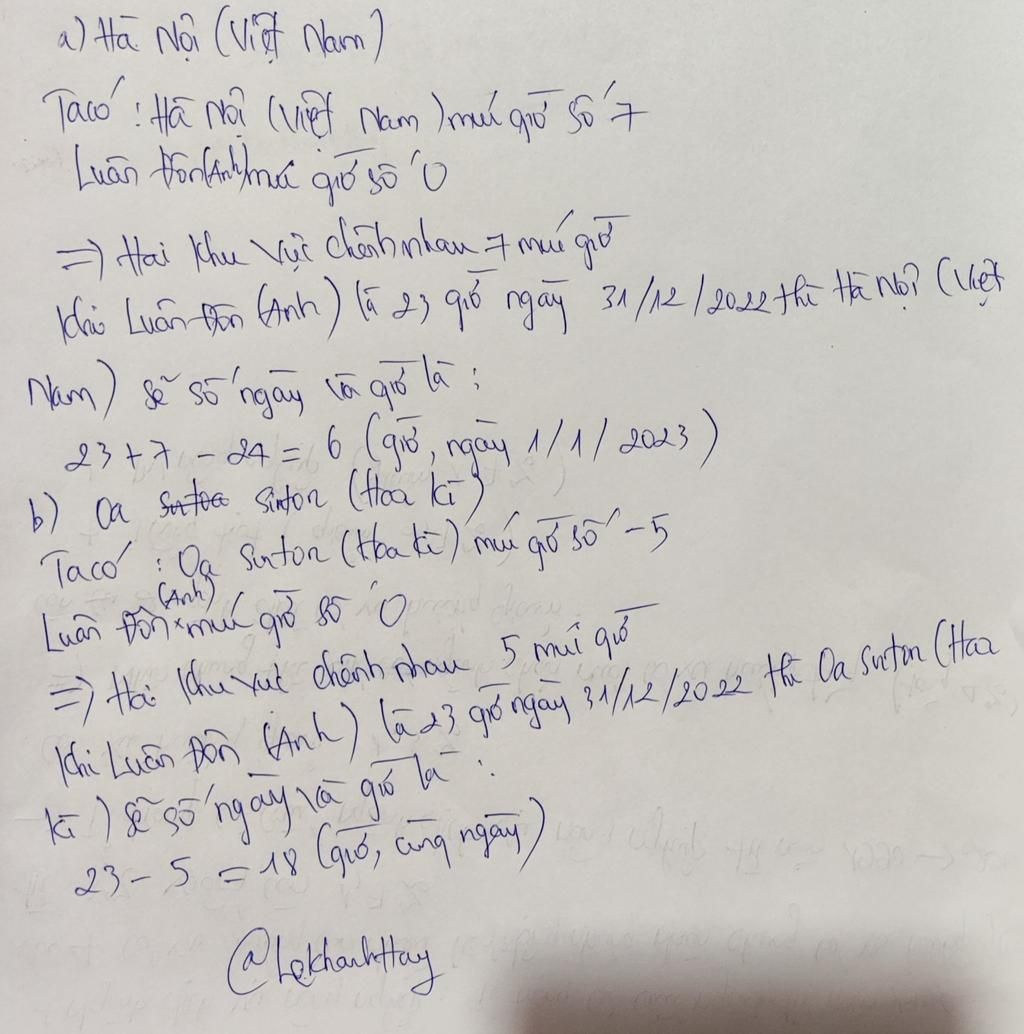 a) Hà Nội (Việt Nam)
Ta có : Hà Nội (Việt Nam) múi giờ số 7
Luân Đôn (Anh) múi giờ số 0
=> Hai khu vực chênh nhau 7 múi giờ
Khi Luân Đôn (Anh) là 23 giờ ngày 31/12/2022 thì Hà Nội (Việt
Nam) sẽ số ngày và giờ là :
23 + 7 - 24 = 6 (giờ, ngày 1/1/2023)
b) Oa sinton (Hoa kì)
Ta có : Oa sinton (Hoa kì) múi giờ số -5
Luân Đôn (Anh) múi giờ số 0
=> Hai khu vực chênh nhau 5 múi giờ
Khi Luân Đôn (Anh) là 23 giờ ngày 31/12/2022 thì Oa sinton (Hoa
kì) sẽ số ngày và giờ là :
23 - 5 = 18 (giờ, cùng ngày)
@LekhanhHay